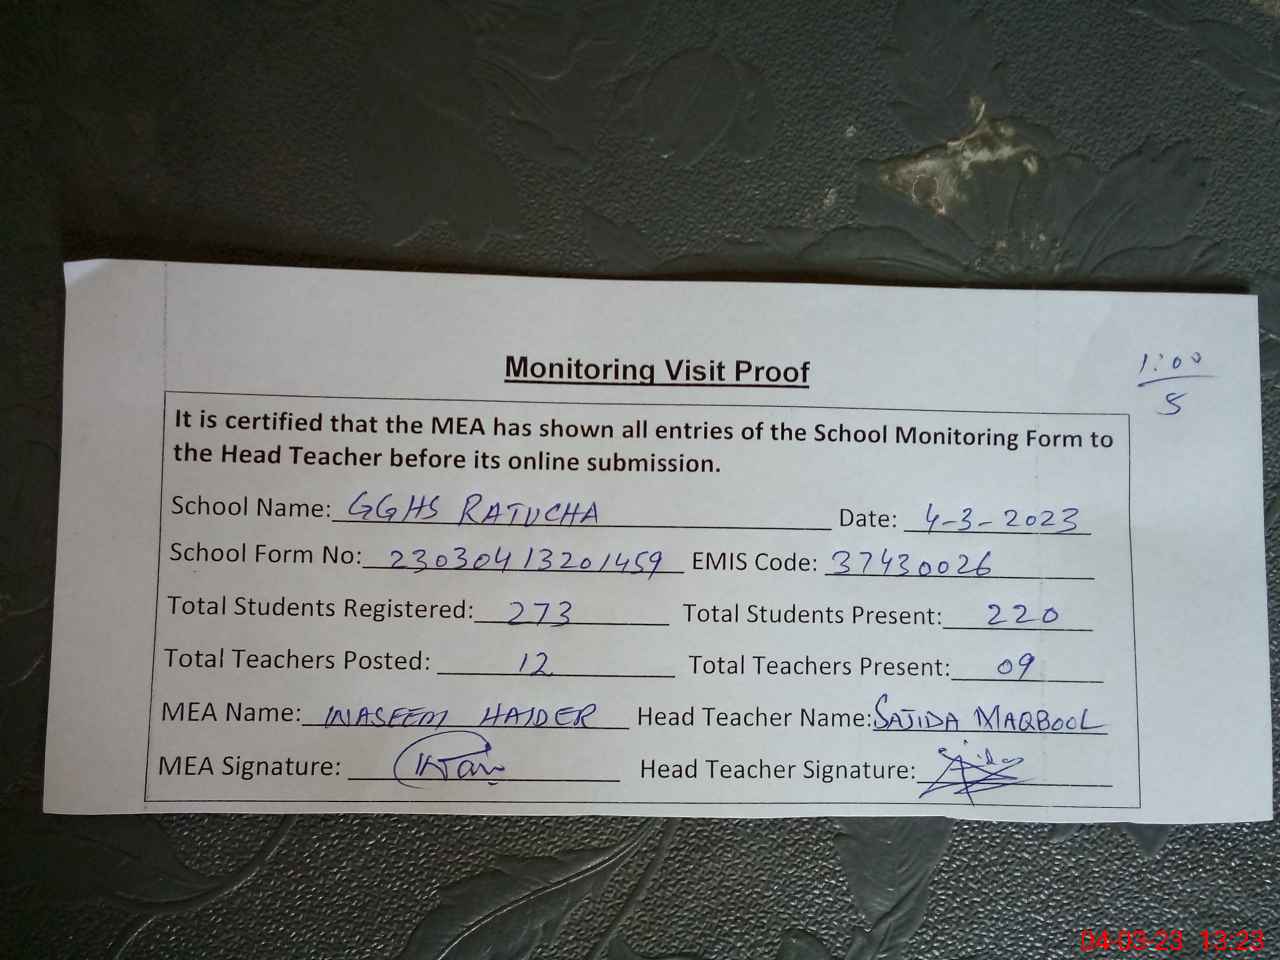 Monitoring Visit Proof
1:00
5
It is certified that the MEA has shown all entries of the School Monitoring Form to
the Head Teacher before its online submission.
School Name: GGHS RATUCHA Date: 4-3-2023
School Form No: 23030413201459 EMIS Code: 37430026
Total Students Registered: 273 Total Students Present: 220
Total Teachers Posted: 12 Total Teachers Present: 09
MEA Name: WASEEM HAIDER Head Teacher Name: SAJIDA MAQBOOL
MEA Signature: Head Teacher Signature:
04-03-23 13:23